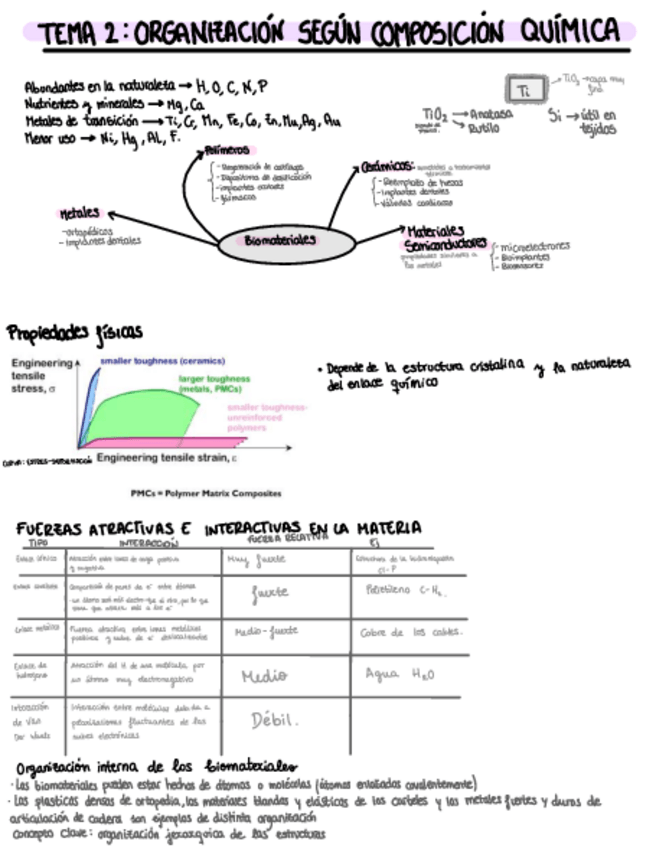 TEMA 2: ORGANIZACIÓN SEGÚN COMPOSICIÓN QUÍMICA
Abundantes en la naturaleza → H, O, C, N, P
Nutrientes y minerales → Mg, Ca
Metales de transición → Ti, Cr, Mn, Fe, Co, Zn, Mu, Ag, Au
Menor uso → Ni, Hg, Al, F.
Ti
TiO₂ → capa muy fina
TiO₂ → Anatasa
→ Rutilo
Si → útil en tejidos
Polímeros
- Regeneración de cartílagos
- Dispositivos de dosificación
- implantes oculares
Cerámicos:
- Reemplazo de huesos
- Implantes dentales
- Válvulas cardiacas
Metales
- ortopédicos
- Implantes dentales
Biomateriales
Materiales Semiconductores
propiedades similares a los metales
- microelectrones
- Bioimplantes
- Biosensores
Propiedades físicas
Engineering tensile stress, σ
smaller toughness (ceramics)
larger toughness (metals, PMCs)
smaller toughness-unreinforced polymers
Engineering tensile strain, ε
PMCs = Polymer Matrix Composites
• Depende de la estructura cristalina y la naturaleza
del enlace químico
FUERZAS ATRACTIVAS E INTERACTIVAS EN LA MATERIA
TIPO INTERACCIÓN FUERZA RELATIVA EJ
Enlace iónico Atracción entre iones de carga positiva y negativa Muy fuerte
Enlace covalente Compartición de pares de e⁻ entre átomos fuerte Polietileno C-H₄.
Enlace metálico Fuerza atractiva entre iones metálicos positivos y nube de e⁻ deslocalizados Medio-fuerte Cobre de los cables.
Enlace de hidrógeno Atracción del H de una molécula por un átomo muy electronegativo Medio Agua H₂O
Interacción de Van Der Waals Interacción entre moléculas debida a polarizaciones fluctuantes de las nubes electrónicas Débil.
Organización interna de los biomateriales
· Los biomateriales pueden estar hechos de átomos o moléculas (átomos enlazados covalentemente)
· Los plasticos densos de ortopedia, los materiales blandos y elásticos de los y los metales fuertes y duros de
articulación de cadera son ejemplos de distinta organización
Concepto clave: organización jerarquica de las estructuras